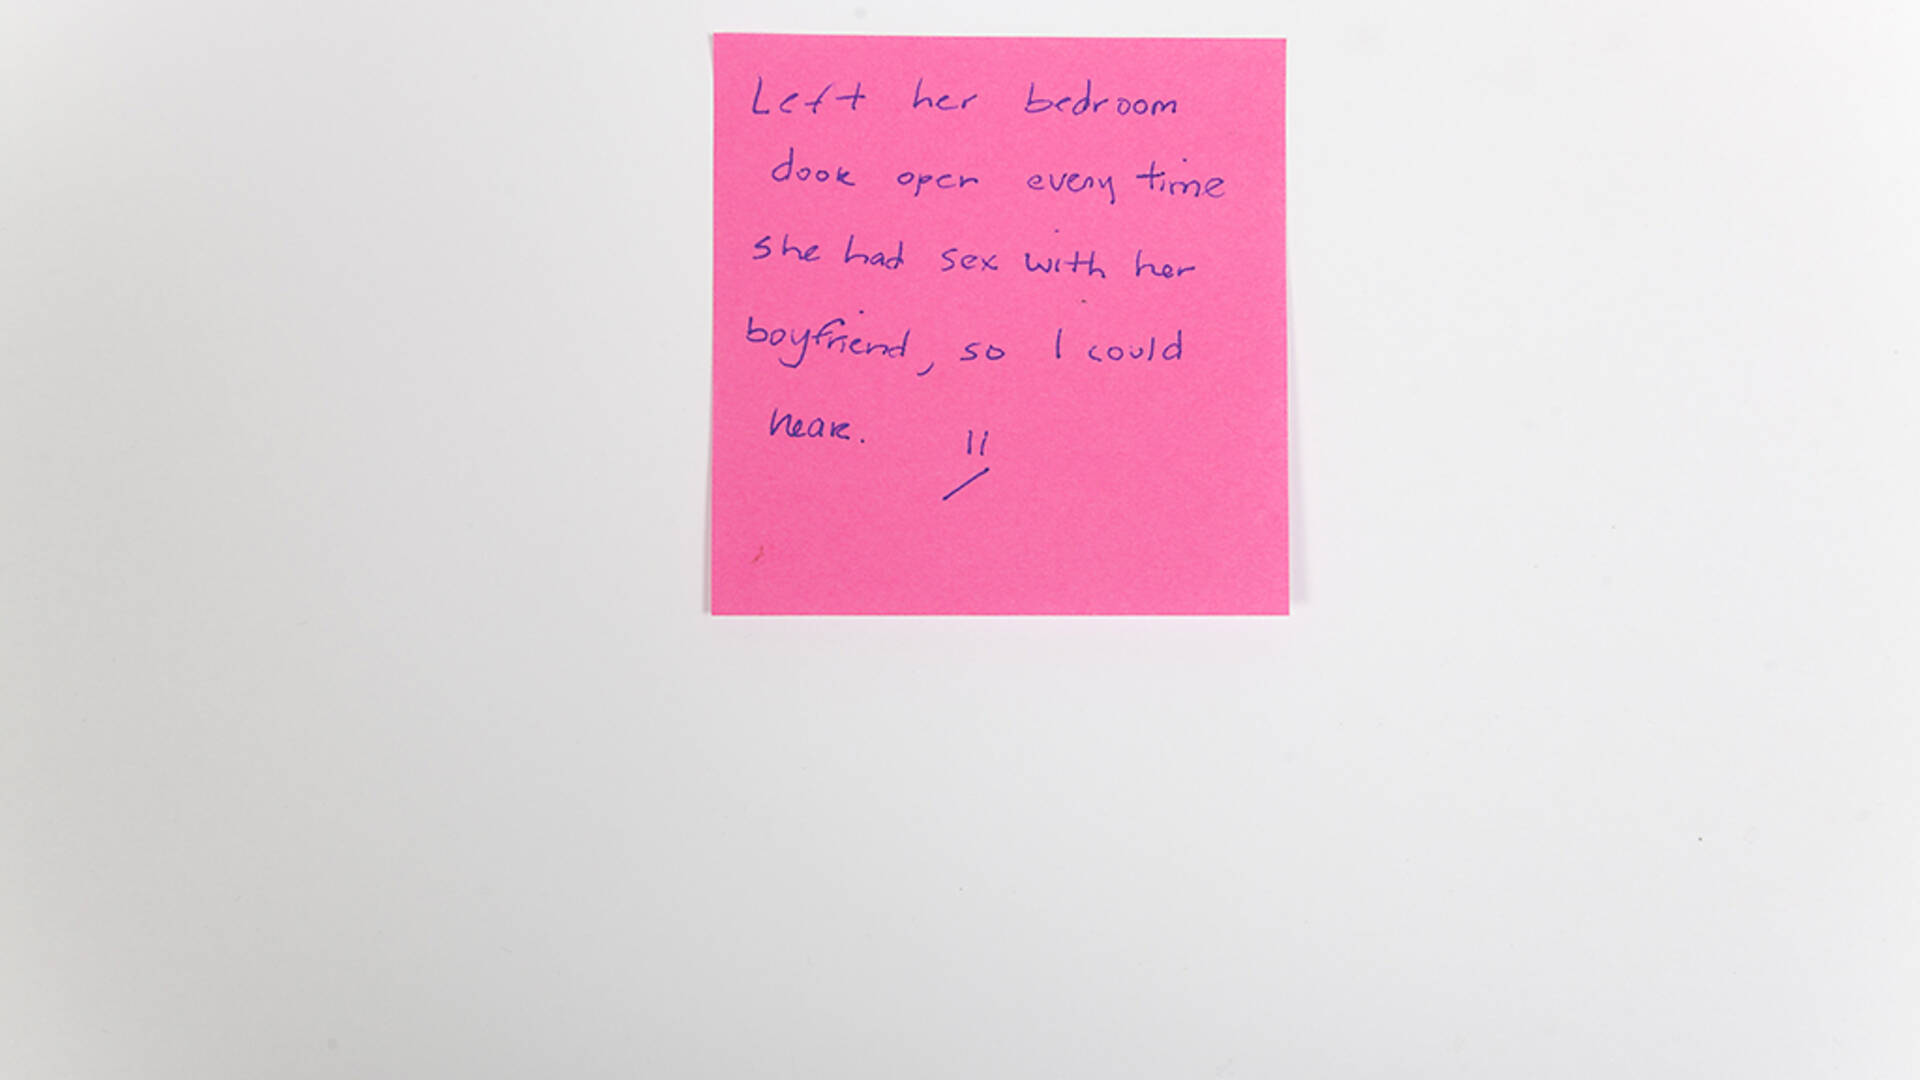 Left her bedroom
door open every time
she had sex with her
boyfriend, so I could
hear.